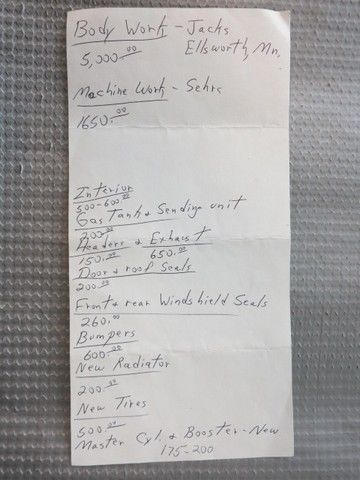 Body Work - Jacks
5,000.00 Ellsworth, Mn.
Machine Work - Sehrc
1650.00
Interior
500-600.00
Gas Tank & Sending unit
200.00
Headers & Exhaust
150.00 650.00
Door & roof Seals
200.00
Front & rear Windshield Seals
260.00
Bumpers
600.00
New Radiator
200.00
New Tires
500.00
Master Cyl. & Booster-New
175-200